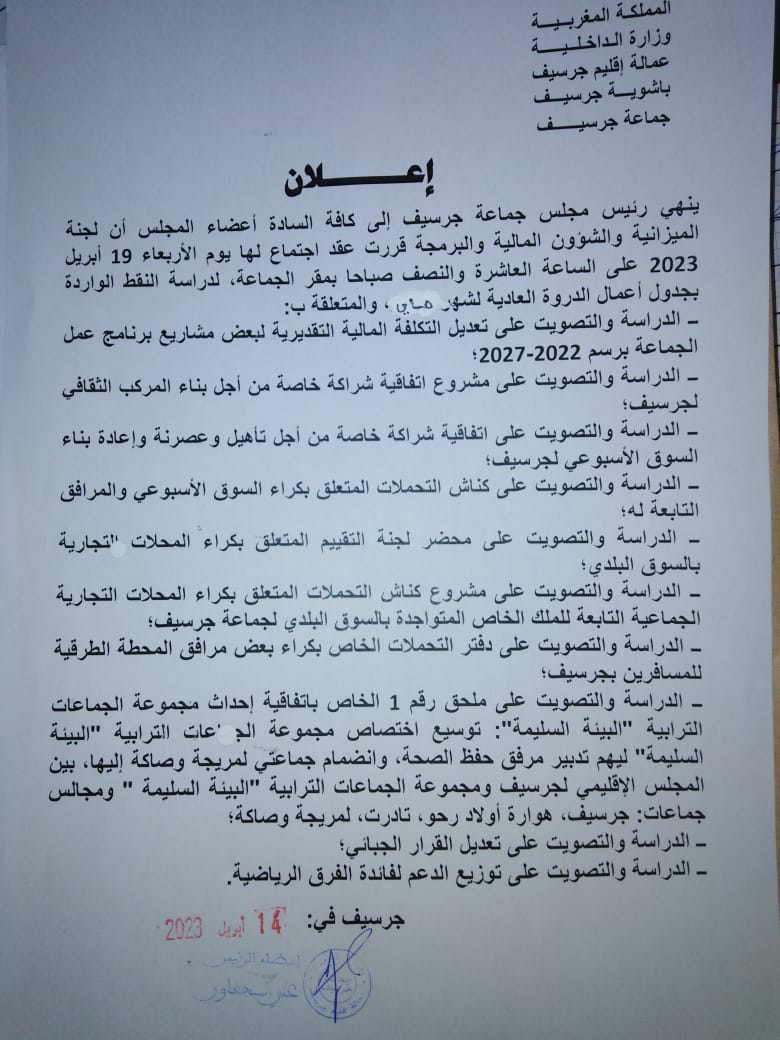 المملكة المغربيـــة
وزارة الـداخلـــية
عمالة إقليم جرسيف
باشويـــة جرسيـــف
جماعة جرسيــــف
إعـــــــلان
ينهي رئيس مجلس جماعة جرسيف إلى كافة السادة أعضاء المجلس أن لجنة
الميزانية والشؤون المالية والبرمجة قررت عقد اجتماع لها يوم الأربعاء 19 أبريل
2023 على الساعة العاشرة والنصف صباحا بمقر الجماعة، لدراسة النقط الواردة
بجدول أعمال الدروة العادية لشهر ماي، والمتعلقة ب:
ـ الدراسة والتصويت على تعديل التكلفة المالية التقديرية لبعض مشاريع برنامج عمل
الجماعة برسم 2022-2027؛
ـ الدراسة والتصويت على مشروع اتفاقية شراكة خاصة من أجل بناء المركب الثقافي
لجرسيف؛
ـ الدراسة والتصويت على اتفاقية شراكة خاصة من أجل تأهيل وعصرنة وإعادة بناء
السوق الأسبوعي لجرسيف؛
ـ الدراسة والتصويت على كناش التحملات المتعلق بكراء السوق الأسبوعي والمرافق
التابعة له؛
ـ الدراسة والتصويت على محضر لجنة التقييم المتعلق بكراء المحلات التجارية
بالسوق البلدي؛
ـ الدراسة والتصويت على مشروع كناش التحملات المتعلق بكراء المحلات التجارية
الجماعية التابعة للملك الخاص المتواجدة بالسوق البلدي لجماعة جرسيف؛
ـ الدراسة والتصويت على دفتر التحملات الخاص بكراء بعض مرافق المحطة الطرقية
للمسافرين بجرسيف؛
ـ الدراسة والتصويت على ملحق رقم 1 الخاص باتفاقية إحداث مجموعة الجماعات
الترابية "البيئة السليمة": توسيع اختصاص مجموعة الجماعات الترابية "البيئة
السليمة" ليهم تدبير مرفق حفظ الصحة، وانضمام جماعتي لمريجة وصاكة إليها، بين
المجلس الإقليمي لجرسيف ومجموعة الجماعات الترابية "البيئة السليمة " ومجالس
جماعات: جرسيف، هوارة أولاد رحو، تادرت، لمريجة وصاكة؛
ـ الدراسة والتصويت على تعديل القرار الجبائي؛
ـ الدراسة والتصويت على توزيع الدعم لفائدة الفرق الرياضية.
جرسيف في: 14 أبريل 2023
إمضاء الرئيس
علي